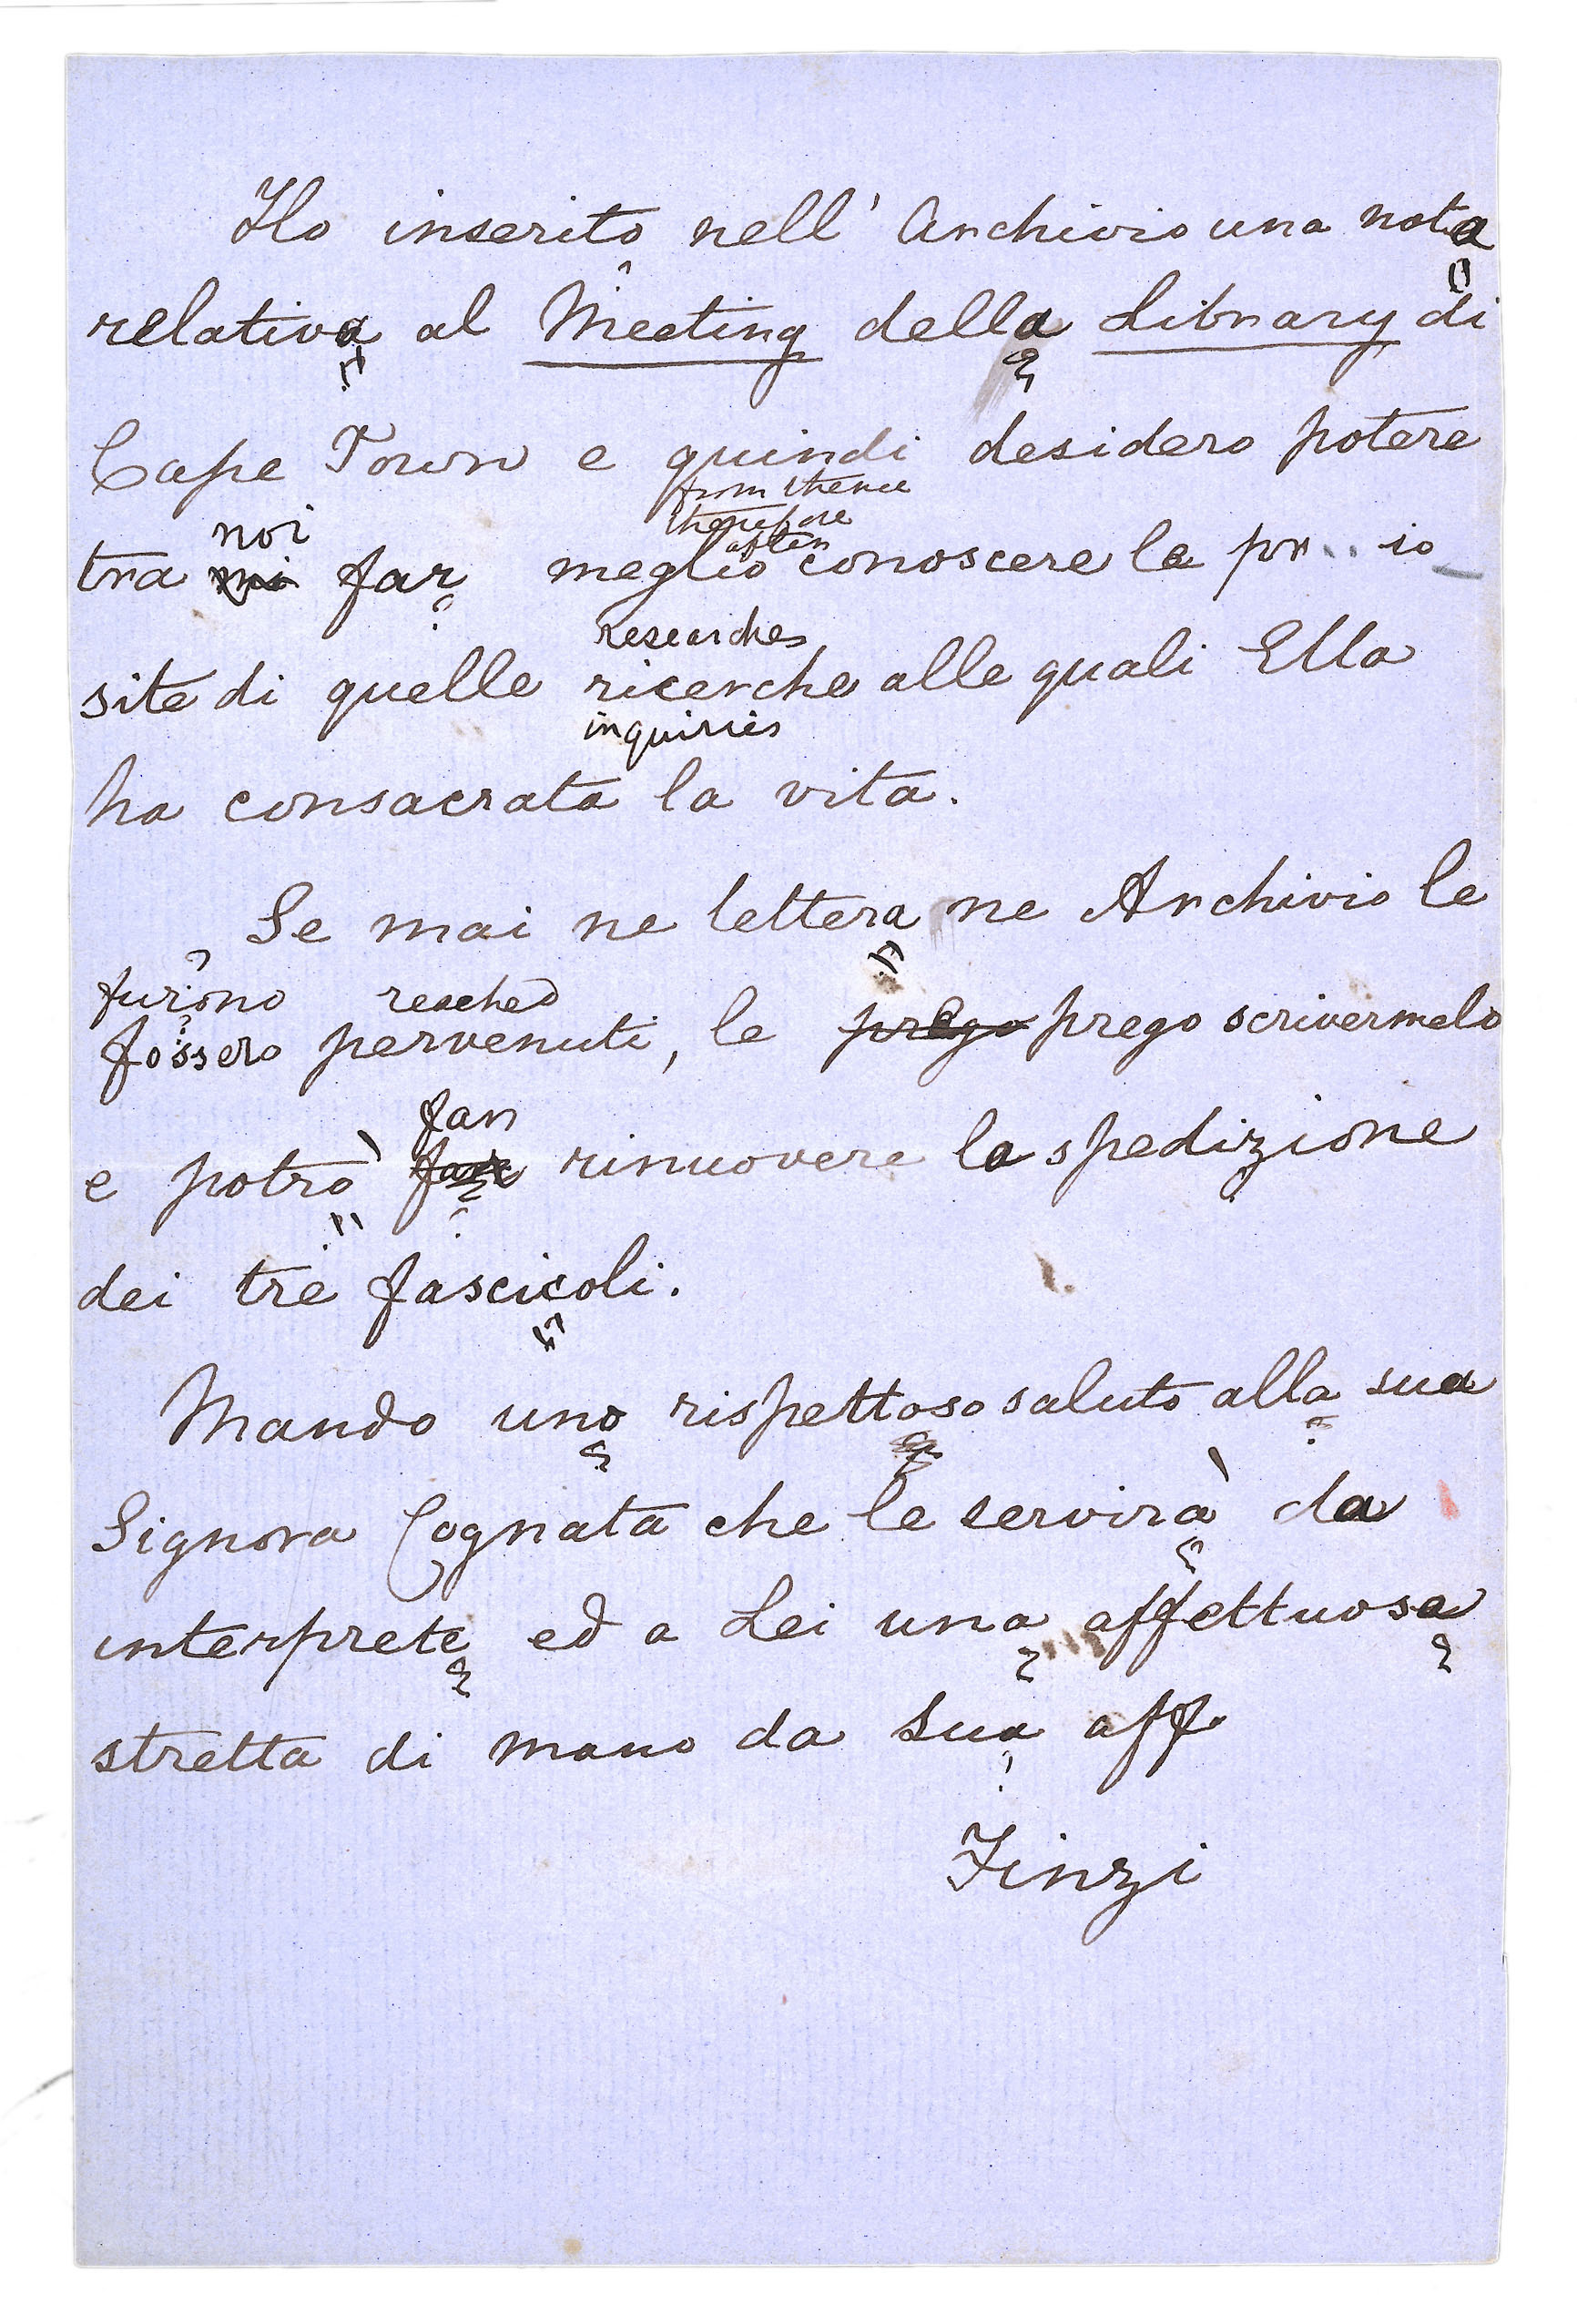 Ho inserito nell' Archivio una nota
relativa al Meeting della Library di
Cape Town e quindi desidero potere
from thence
therefore
noi after
tra mi far meglio conoscere le pr... io
researches
site di quelle ricerche alle quali Ella
inquiries
ha consacrata la vita.
Se mai ne lettera ne Archivio le
furono reached
fossero pervenuti, le prego prego scrivermelo
far
e potrò fare rinuovere la spedizione
dei tre fascicoli.
Mando uno rispettoso saluto alla sua
Signora Cognata che le servirà da
interprete ed a Lei una affettuosa
stretta di mano da sua aff.
Finzi